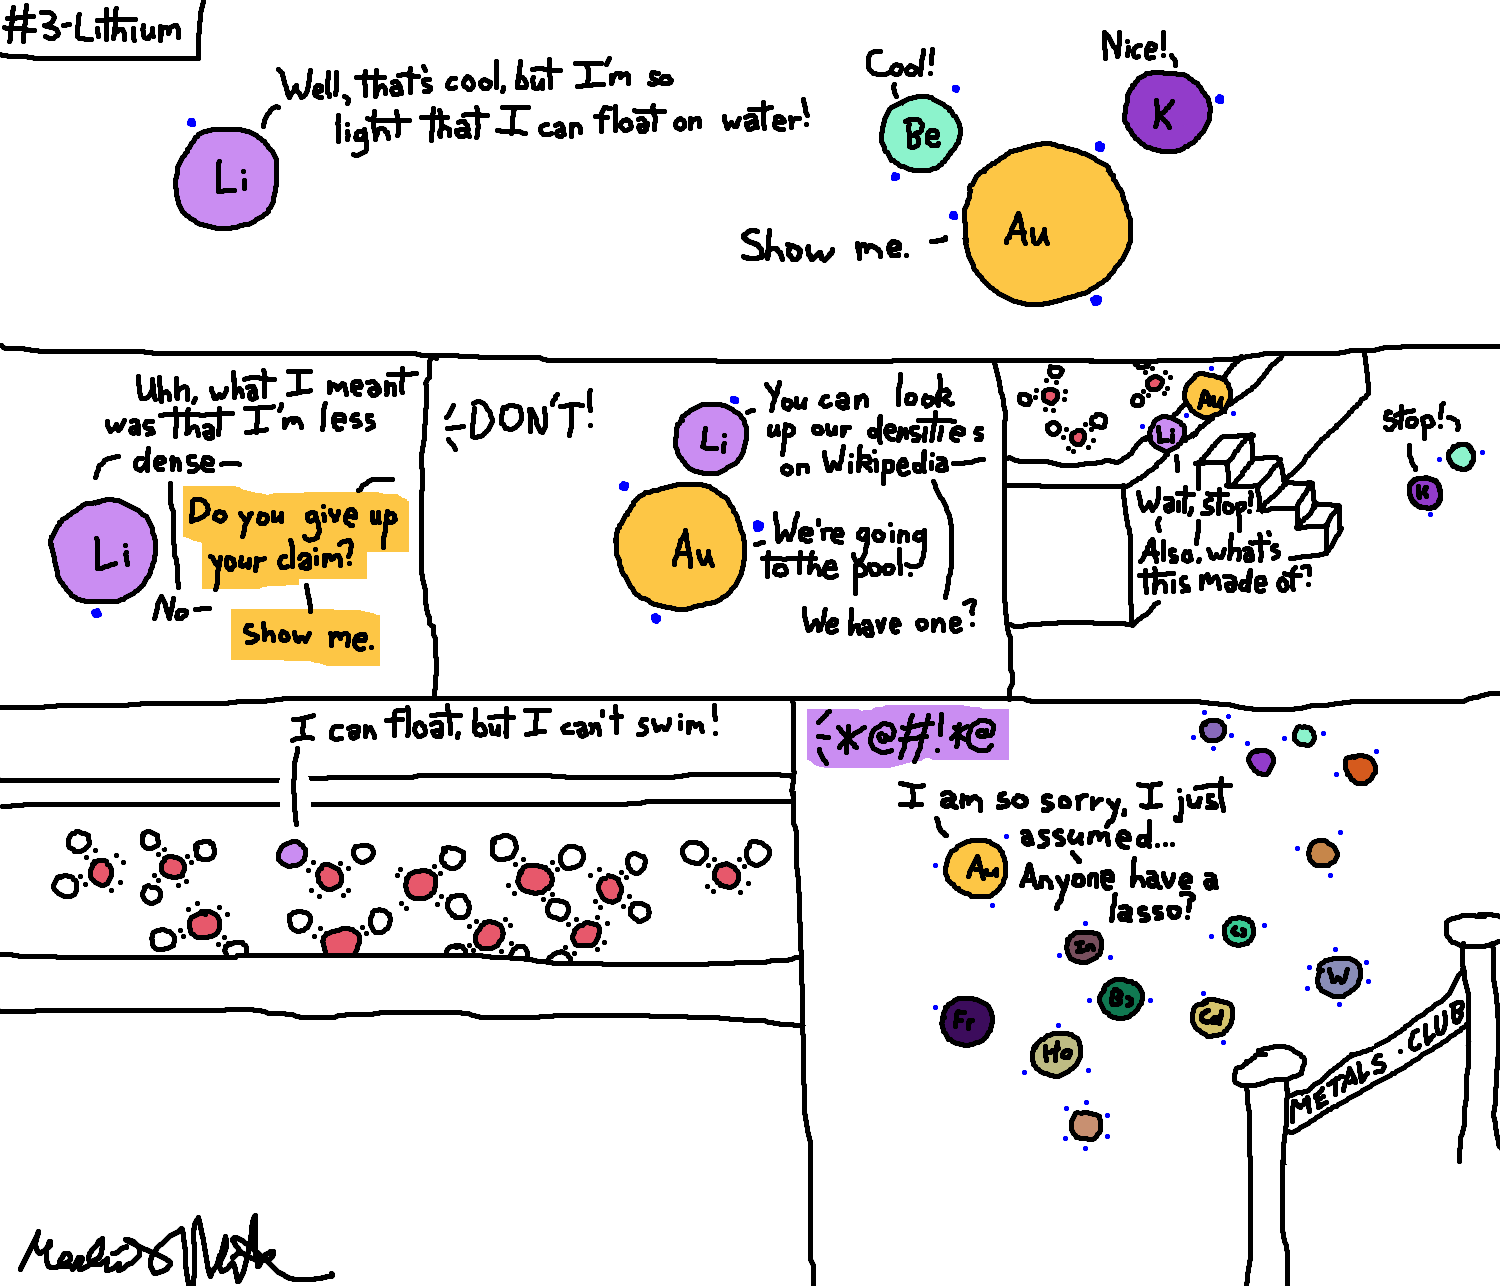 #3-Lithium
Well, that's cool, but I'm so
light that I can float on water!
Li
Cool!
Be
Nice!
K
Show me.
Au
Uhh, what I meant
was that I'm less
dense—
Li
Do you give up
your claim?
No-
Show me.
DON'T!
Li
You can look
up our densities
on Wikipedia—
Au
We're going
to the pool.
We have one?
Au
Li
Wait, stop!
Also, what's
this made of?
Stop!
K
I can float, but I can't swim!
*@#!*@
I am so sorry, I just
assumed...
Au
Anyone have a
lasso?
In
Cs
W
Fr
Ho
Cd
METALS · CLUB